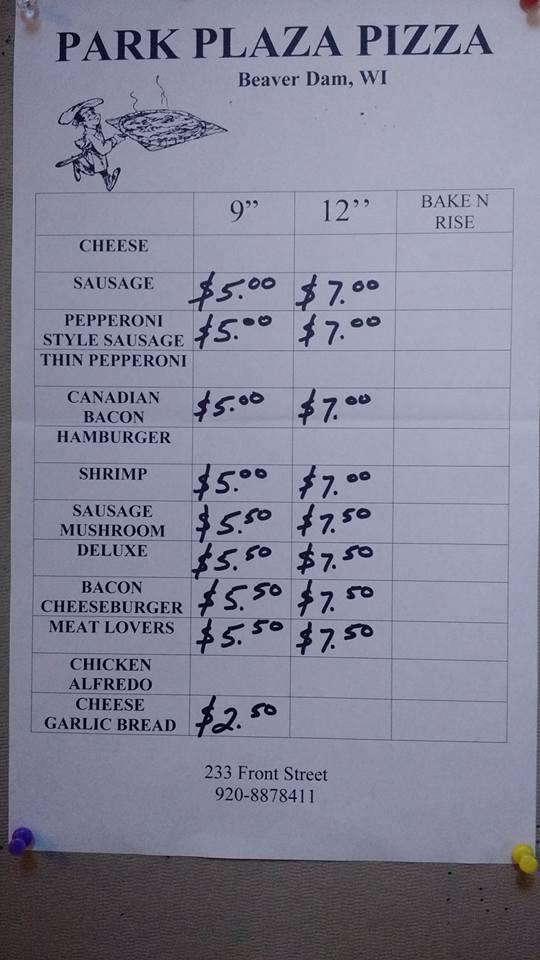 PARK PLAZA PIZZA
Beaver Dam, WI
9” 12’’ BAKE N
RISE
CHEESE
SAUSAGE $5.00 $7.00
PEPPERONI
STYLE SAUSAGE $5.00 $7.00
THIN PEPPERONI
CANADIAN
BACON $5.00 $7.00
HAMBURGER
SHRIMP $5.00 $7.00
SAUSAGE
MUSHROOM $5.50 $7.50
DELUXE $5.50 $7.50
BACON
CHEESEBURGER $5.50 $7.50
MEAT LOVERS $5.50 $7.50
CHICKEN
ALFREDO
CHEESE
GARLIC BREAD $2.50
233 Front Street
920-8878411